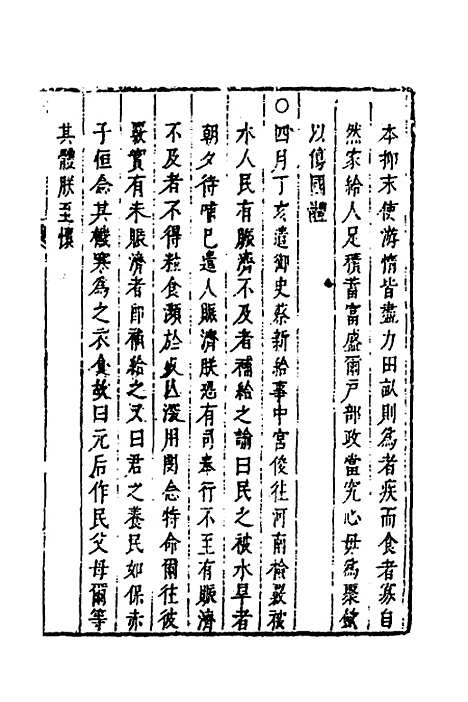 本抑末使游惰皆盡力田畝則為者疾而食者寡自
然家給人足積蓄富盛爾戶部政當究心毋為聚斂
以傷國體
○四月丁亥遣御史蔡新給事中宮俊往河南檢覈被
水人民有賑濟不及者補給之諭曰民之被水旱者
朝夕待哺已遣人賑濟朕恐有司奉行不至有賑濟
不及者不得粒食瀕於死亡深用閔念特命爾往彼
覈實有未賑濟者即補給之又曰君之養民如保赤
子但念其饑寒為之衣食故曰元后作民父母爾等
其體朕至懷